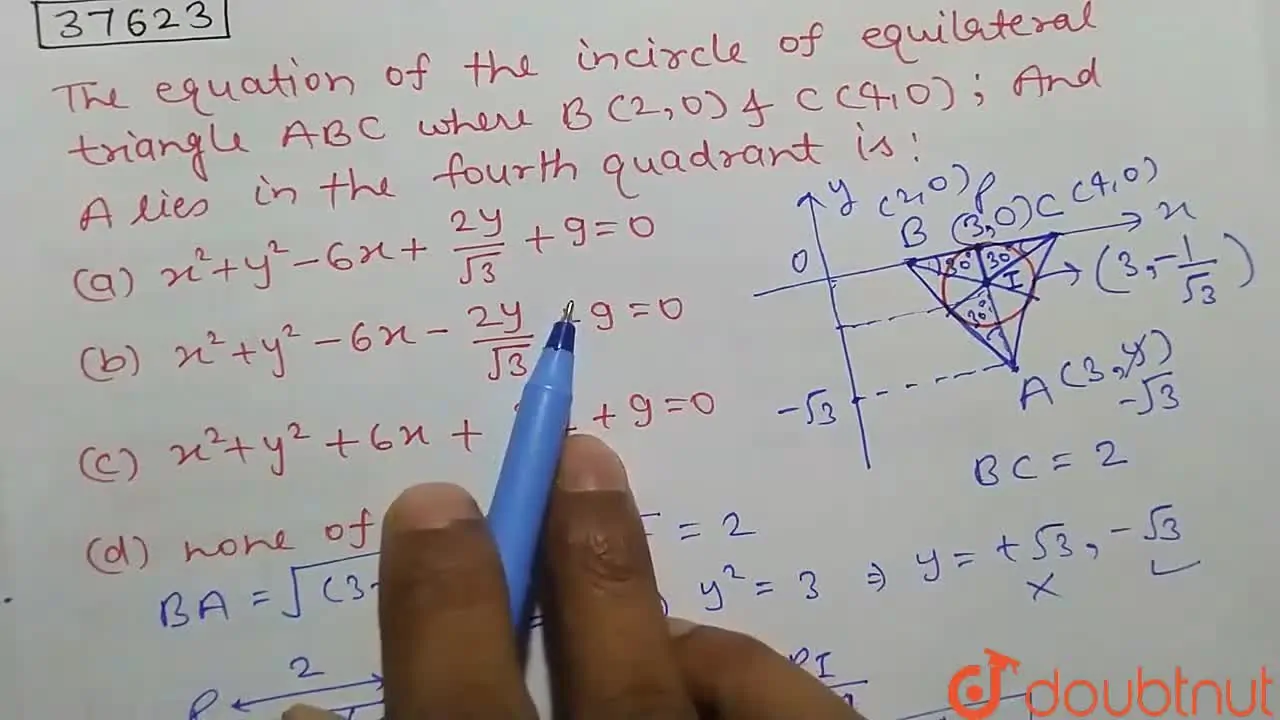 37623
The equation of the incircle of equilateral
triangle ABC where B(2,0) & C(4,0); And
A lies in the fourth quadrant is:
(a) x²+y²-6x+ 2y/√3 +9=0
(b) x²+y²-6x- 2y/√3 +9=0
(c) x²+y²+6x+ +9=0
(d) none of = 2
y
(2,0) P (3,0) C (4,0)
B
x
0
30° 30°
I
(3,-1/√3)
30°
A (3,y)
-√3
-√3
BC = 2
BA = √(3- y² = 3 ⇒ y = +√3, -√3
x ✓
2
P
PI
doubtnut